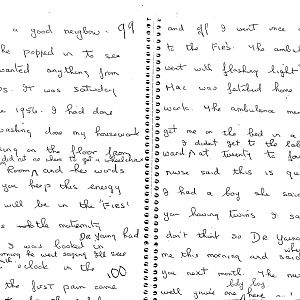 a good neighbor. 99
he popped in to see
wanted anything from
s. It was Saturday
e 1956. I had done
washing done my housework
ing on the floor from
did not as when to get a
Room and he words
you keep this energy
will be in the 'Firs'
maternity
De Young had
I was booked in
morning he was saying I'll see
o'clock in the 100
the first pain came
and off I went once
to the Firs. The ambul
went with flashing light
Mac was fetched home
work. The ambulance me
get me on the bed in a
I didn't get to the lab
ward at twenty to fo
nurse said this is qu
I had a boy she sa
you having twins I sa
don't think so De Young
me this morning and said
you next month. The nu
big leg
well you've one here